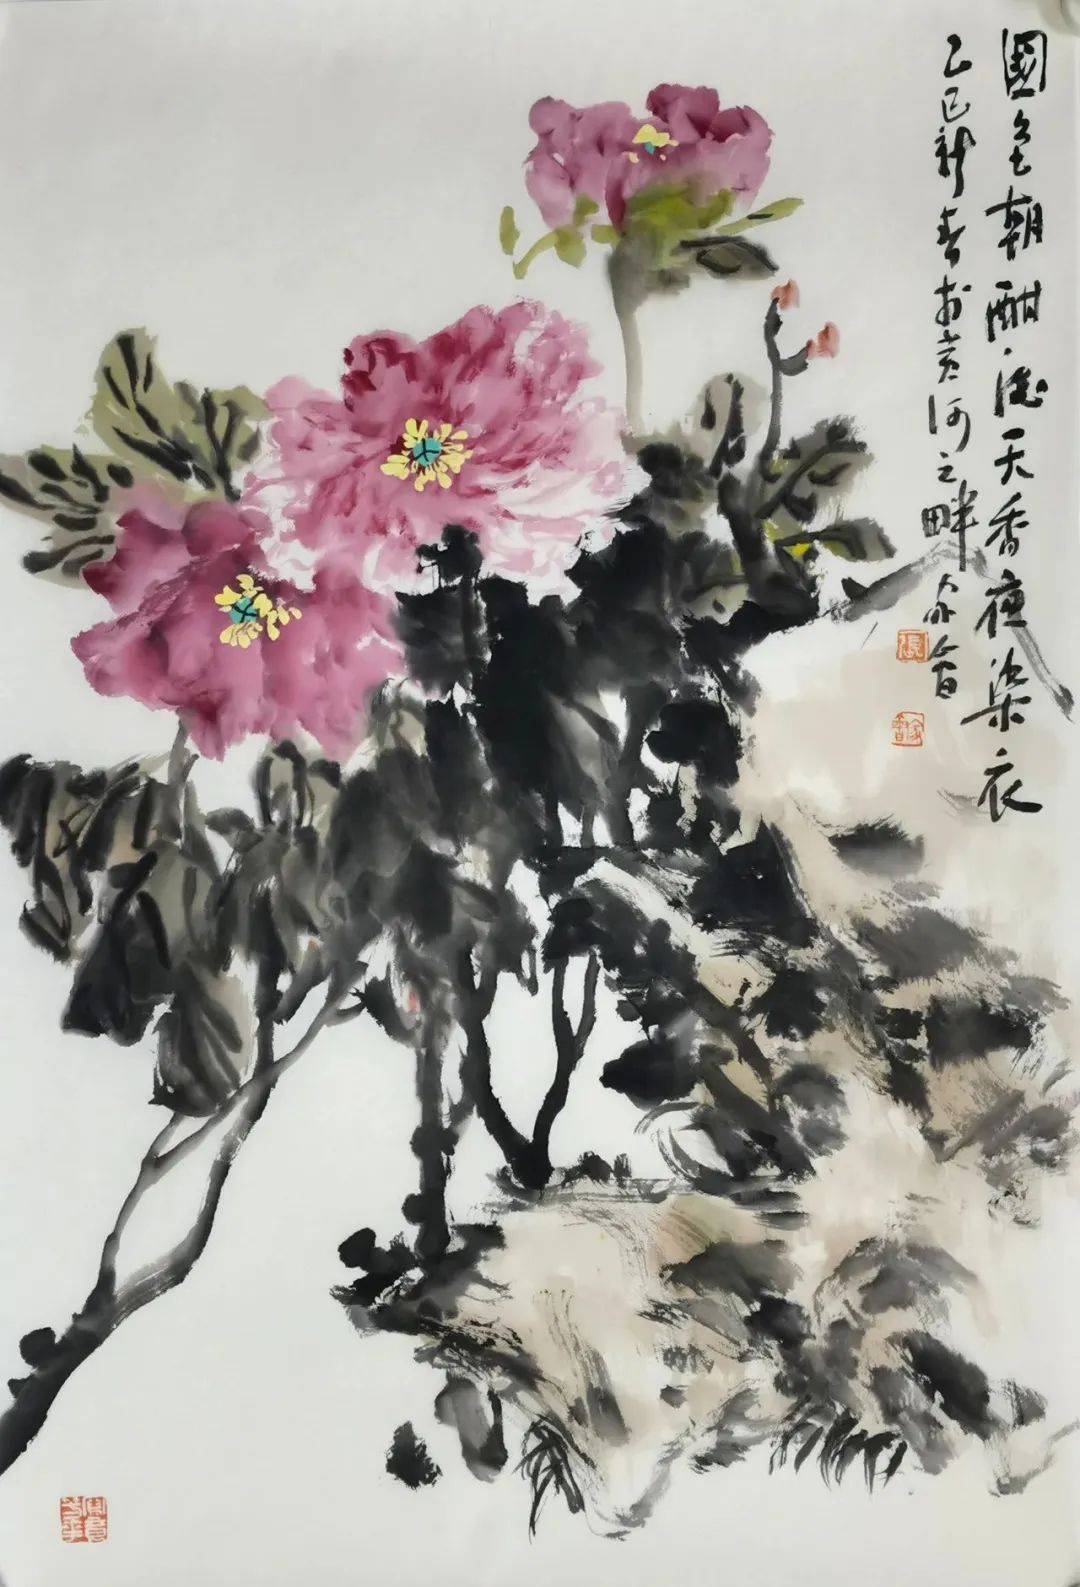 國色朝酣酒天香夜染衣
乙巳新春於黄河之畔
張